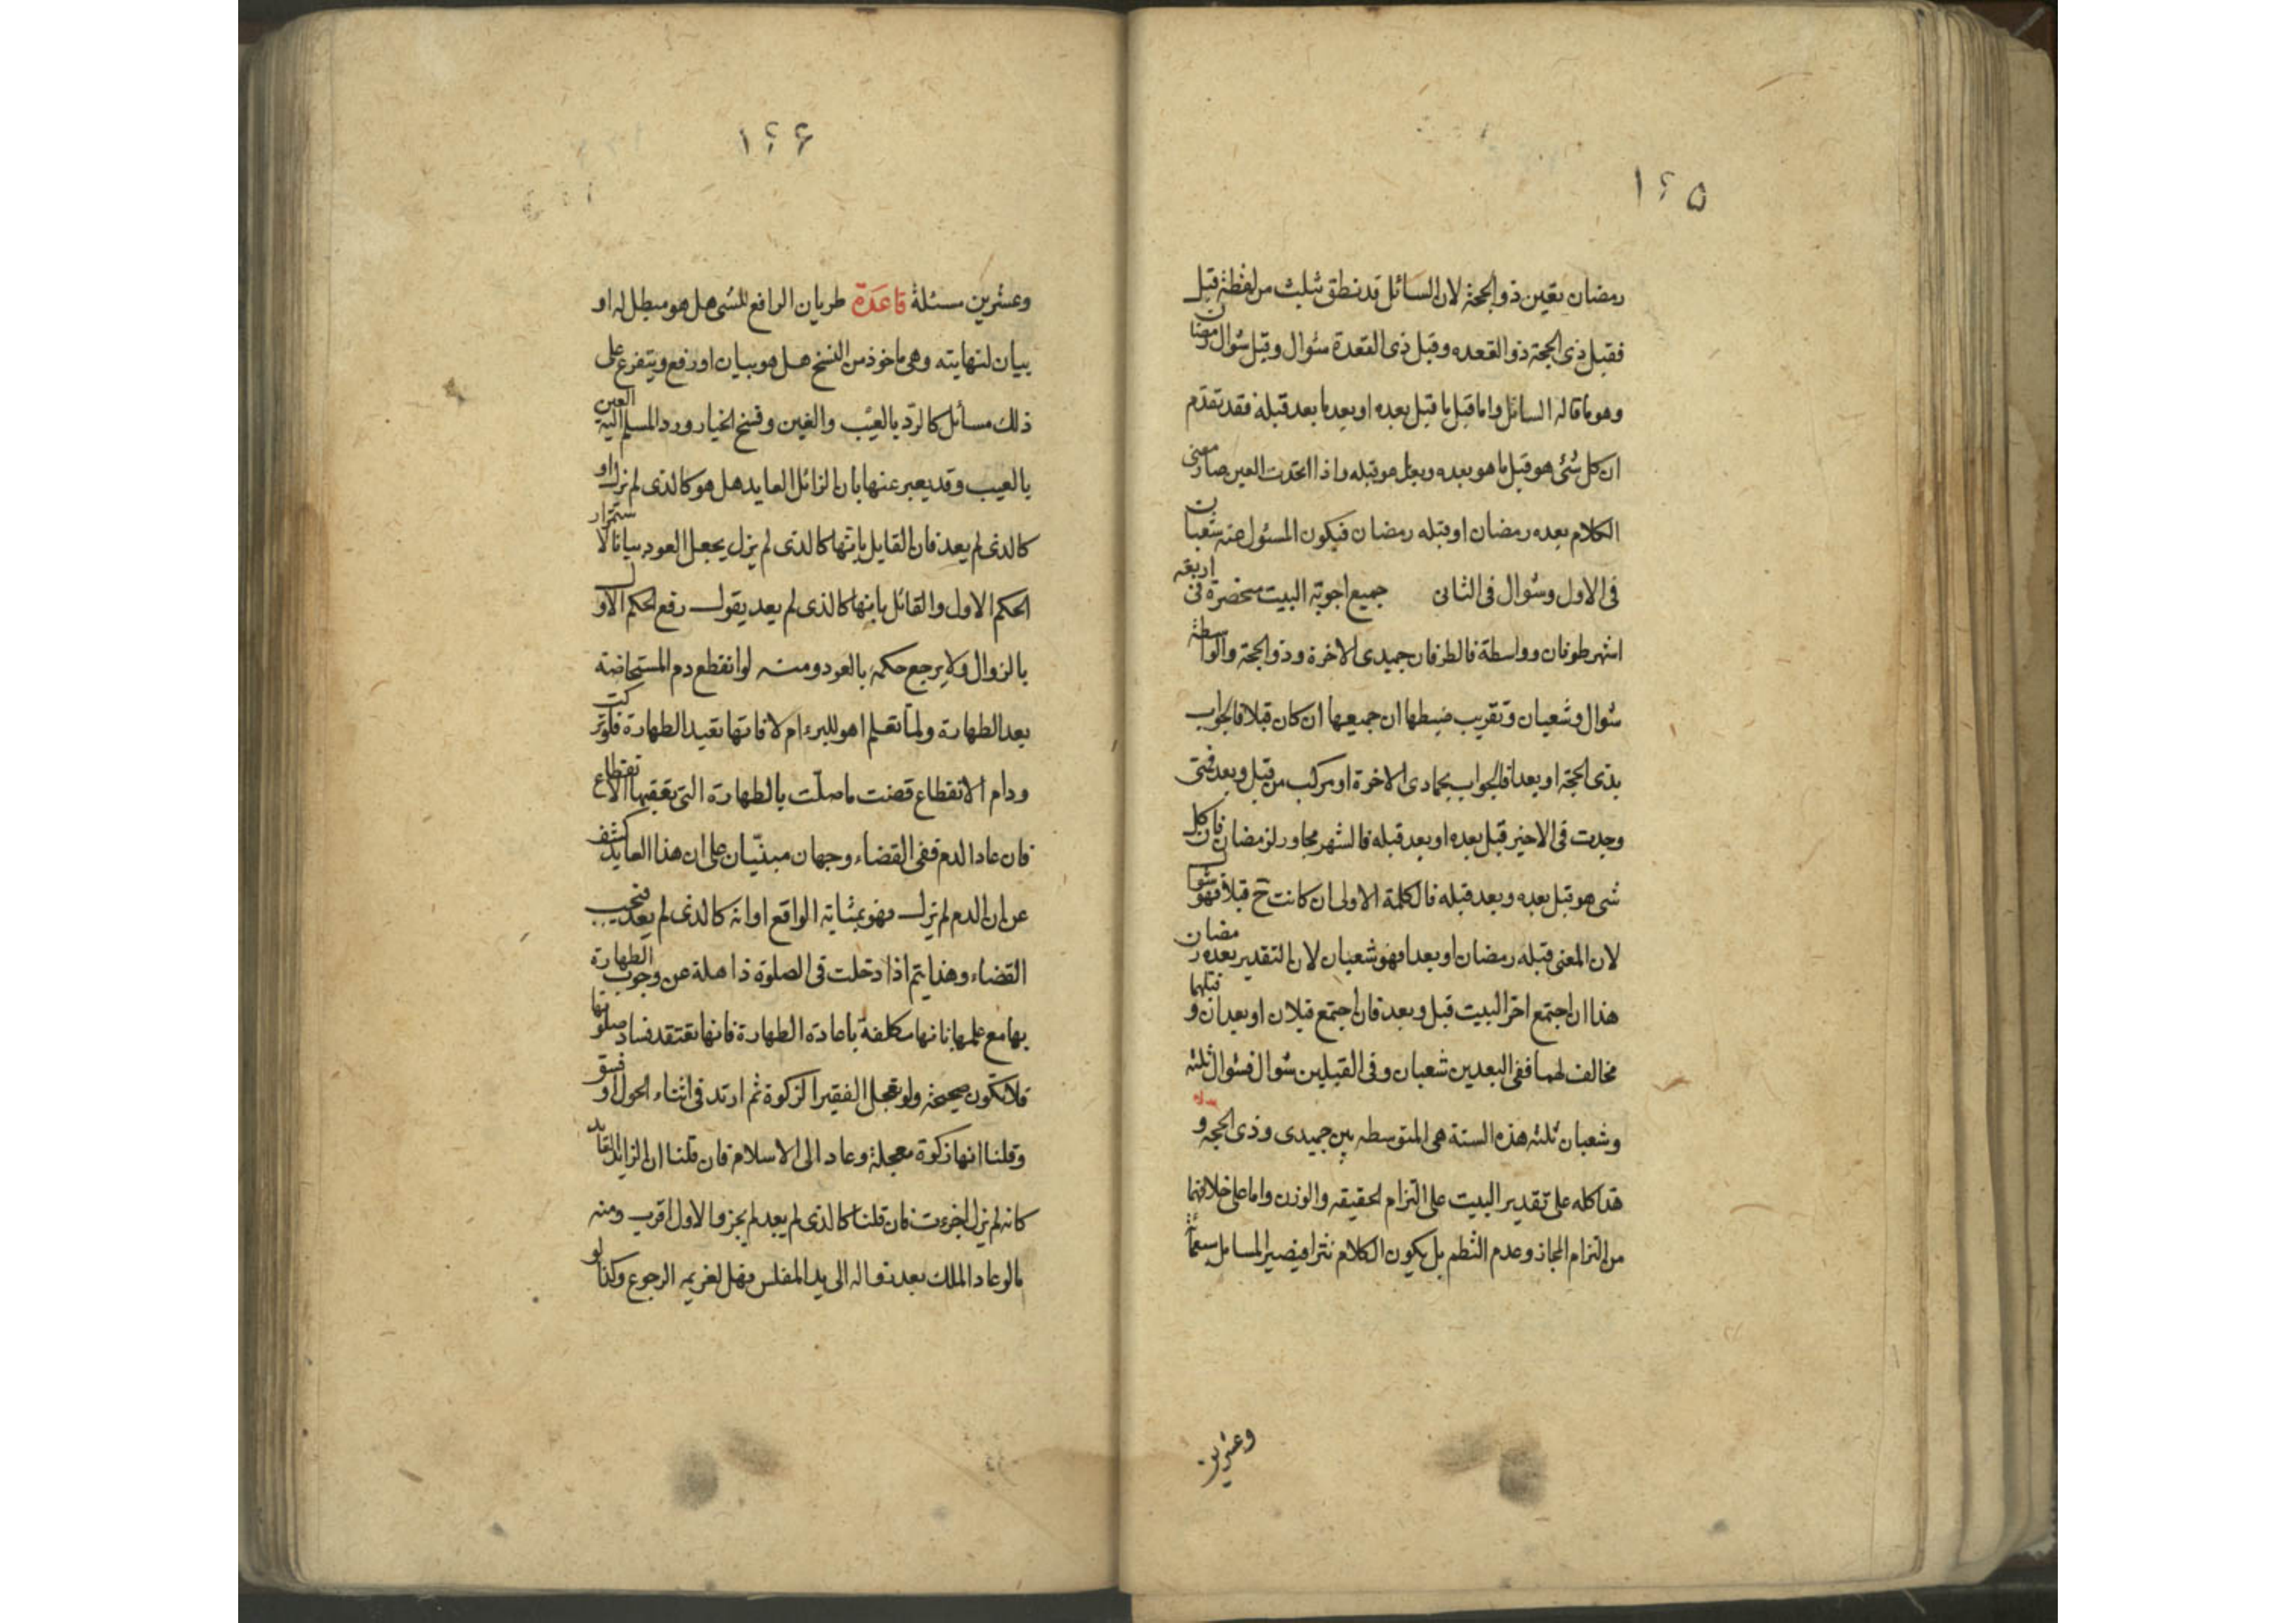 ١٢٥
رمضان تعين ذو الحجة لان السائل قد نطق بثلث من لفظة قبل
فقبل ذى الحجة ذو القعده وقبل ذى القعدة شوال وقبل شوال رمضان
وهو ما قاله السائل واما قبل ما قبل بعده او بعد ما بعد قبله فقد تقدم
ان كل شئ هو قبل ما هو بعده وبعد ما هو قبله واذا اتحدت العين صار معنى
الكلام بعده رمضان او قبله رمضان فيكون المسئول عنه شعبان
فى الاول وشوال فى الثانى جميع اجوبة البيت منحصرة فى اربعه
اشهر طرفان وواسطة فالطرفان جميدى الاخرة وذو الحجة والواسطة
شوال وشعبان وتقريب ضبطها ان جميعها ان كان قبلا فالجواب
بذى الحجة او بعدا فالجواب بجمادى الاخرة او مركب من قبل وبعد فمتى
وجدت فى الاخير قبل بعده او بعد قبله فالشهر مجاور لرمضان فان كل
شى هو قبل بعده وبعد قبله فالكلمة الاولى ان كانت ح قبلا فهو شوال
لان المعنى قبله رمضان او بعدا فهو شعبان لان التقدير بعده رمضان
هذا ان اجتمع اخر البيت قبل وبعد فان اجتمع قبلان او بعدان و قبلهما
مخالف لهما ففى البعدين شعبان وفى القبلين شوال فشوال ثلثه
وشعبان ثلثه هذه الستة هى المتوسطه بين جميدى وذى الحجه و
هذا كله على تقدير البيت على التزام الحقيقه والوزن واما على خلافهما
من التزام المجاز وعدم النظم بل يكون الكلام نثرا فيصير المسايل سبعمأئة
وعشرين
١٢۶
وعشرين مسئلة قاعدة طريان الرافع للشى هل هو مبطل له او
بيان لنهايته وهى ماخوذ من النسخ هل هو بيان او رفع ويتفرع على
ذلك مسائل كالرد بالعيب والغبن وفسخ الخيار ورد المسلم اليه العين
بالعيب وقد يعبر عنها بان الزائل العايد هل هو كالذى لم يزل او
كالذى لم يعد فان القايل بانها كالذى لم يزل يجعل العود بيانا لاستمرار
الحكم الاول والقائل بانها كالذى لم يعد يقول رفع الحكم الاول
بالزوال ولا يرجع حكمه بالعود ومنه لو انقطع دم المستحاضة
بعد الطهارة ولما تعلم اهو للبرء ام لا فانها تعيد الطهارة فلو تركت
ودام الانقطاع قضت ما صلت بالطهارة التى تعقبها الانقطاع
فان عاد الدم ففى القضاء وجهان مبنيان على ان هذا العايد كشف
عن ان الدم لم يزل فهو بمثابة الواقع او انه كالذى لم يعد فيجب
القضاء وهذا يتم اذا دخلت فى الصلوة ذاهلة عن وجوب الطهارة
بها مع علمها بانها مكلفة باعادة الطهارة فانها تعتقد فساد صلوتها
فلا تكون صحيحة ولو عجل الفقير الزكوة ثم ارتد فى اثناء الحول او فسق
وقلنا انها زكوة معجلة وعاد الى الاسلام فان قلنا ان الزائل العايد
كانه لم يزل اجزءت فان قلنا كالذى لم يعد لم يجز والاول اقرب ومنه
ما لو عاد الملك بعد زواله الى يد المفلس فهل لغريمه الرجوع وكذا لو